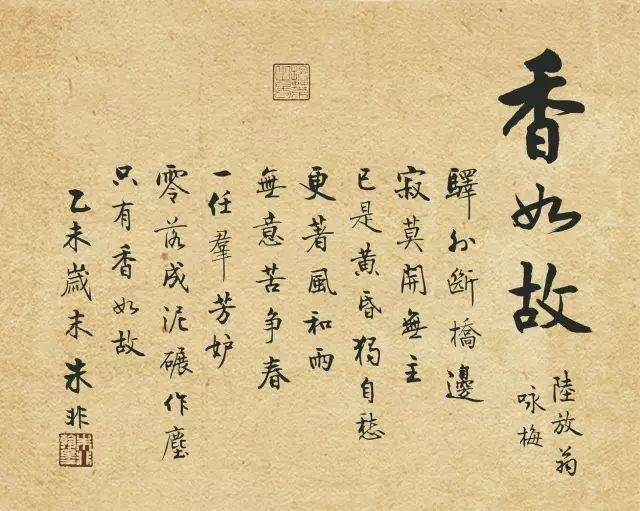 香如故
陸放翁
咏梅
驛外斷橋邊
寂莫開無主
已是黃昏獨自愁
更著風和雨
無意苦争春
一任羣芳妒
零落成泥碾作塵
只有香如故
乙未歲末朱非